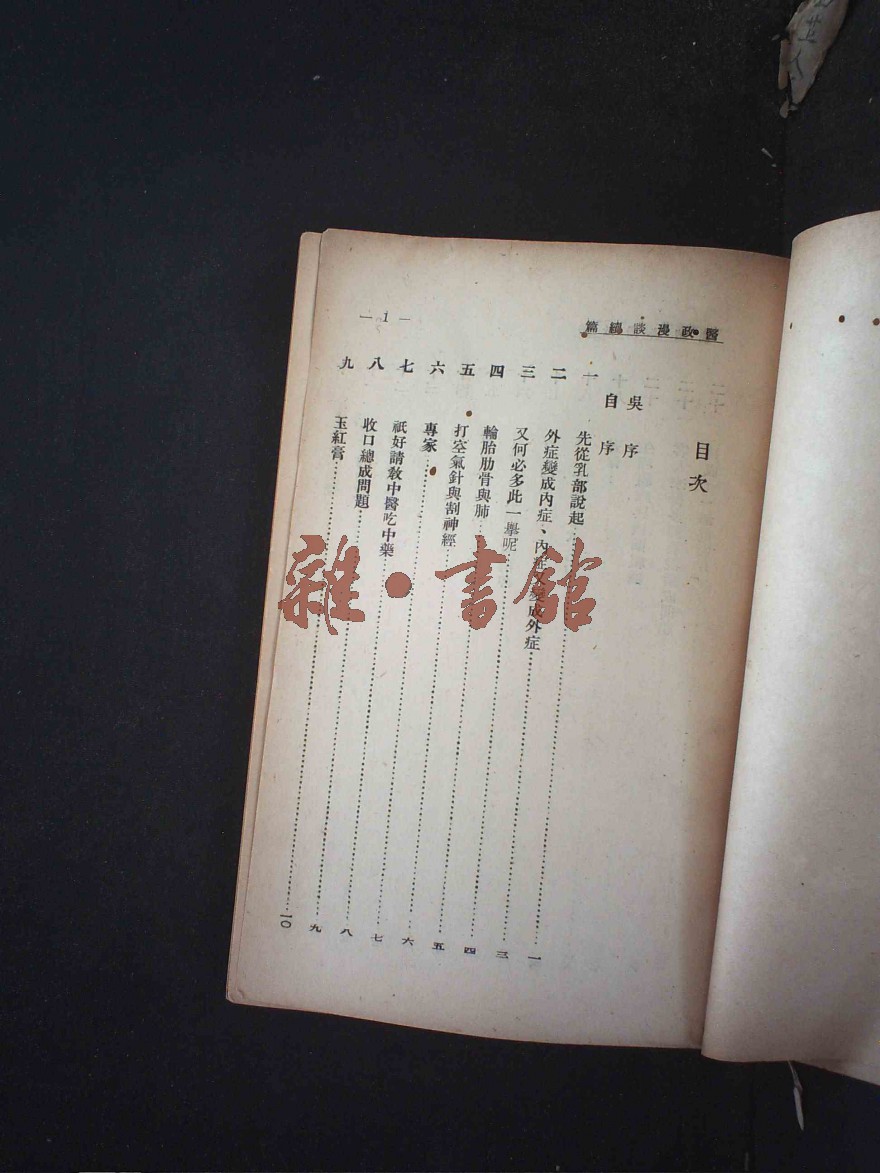 醫政漫談續篇
目次
吳序
自序
一 先從乳部說起……一
二 外症變成內症、內症又變成外症……三
三 又何必多此一舉呢……四
四 輪胎肋骨與肺……五
五 打空氣針與割神經……六
六 專家……七
七 祇好請敎中醫吃中藥……八
八 收口總成問題……九
九 玉紅膏……一〇
— 1 —
雜·書館